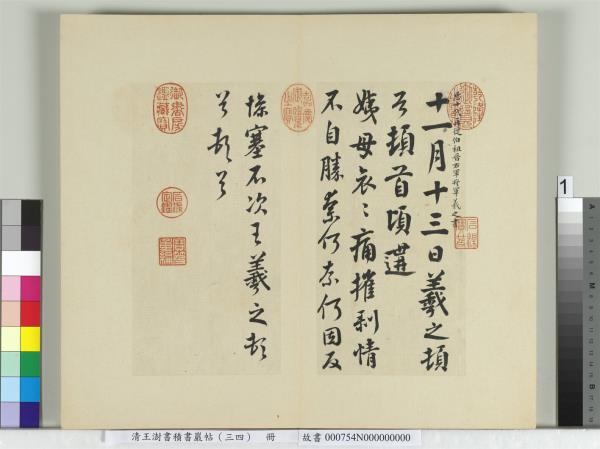 再從伯祖晉右軍將軍羲之書
十一月十三日羲之頓
首頓首頃遘
姨母哀〻痛摧剝情
不自勝奈何奈何因反
慘塞不次王羲之頓
首頓首
清王澍書積書巖帖（三四） 冊 故書 000754N000000000
1